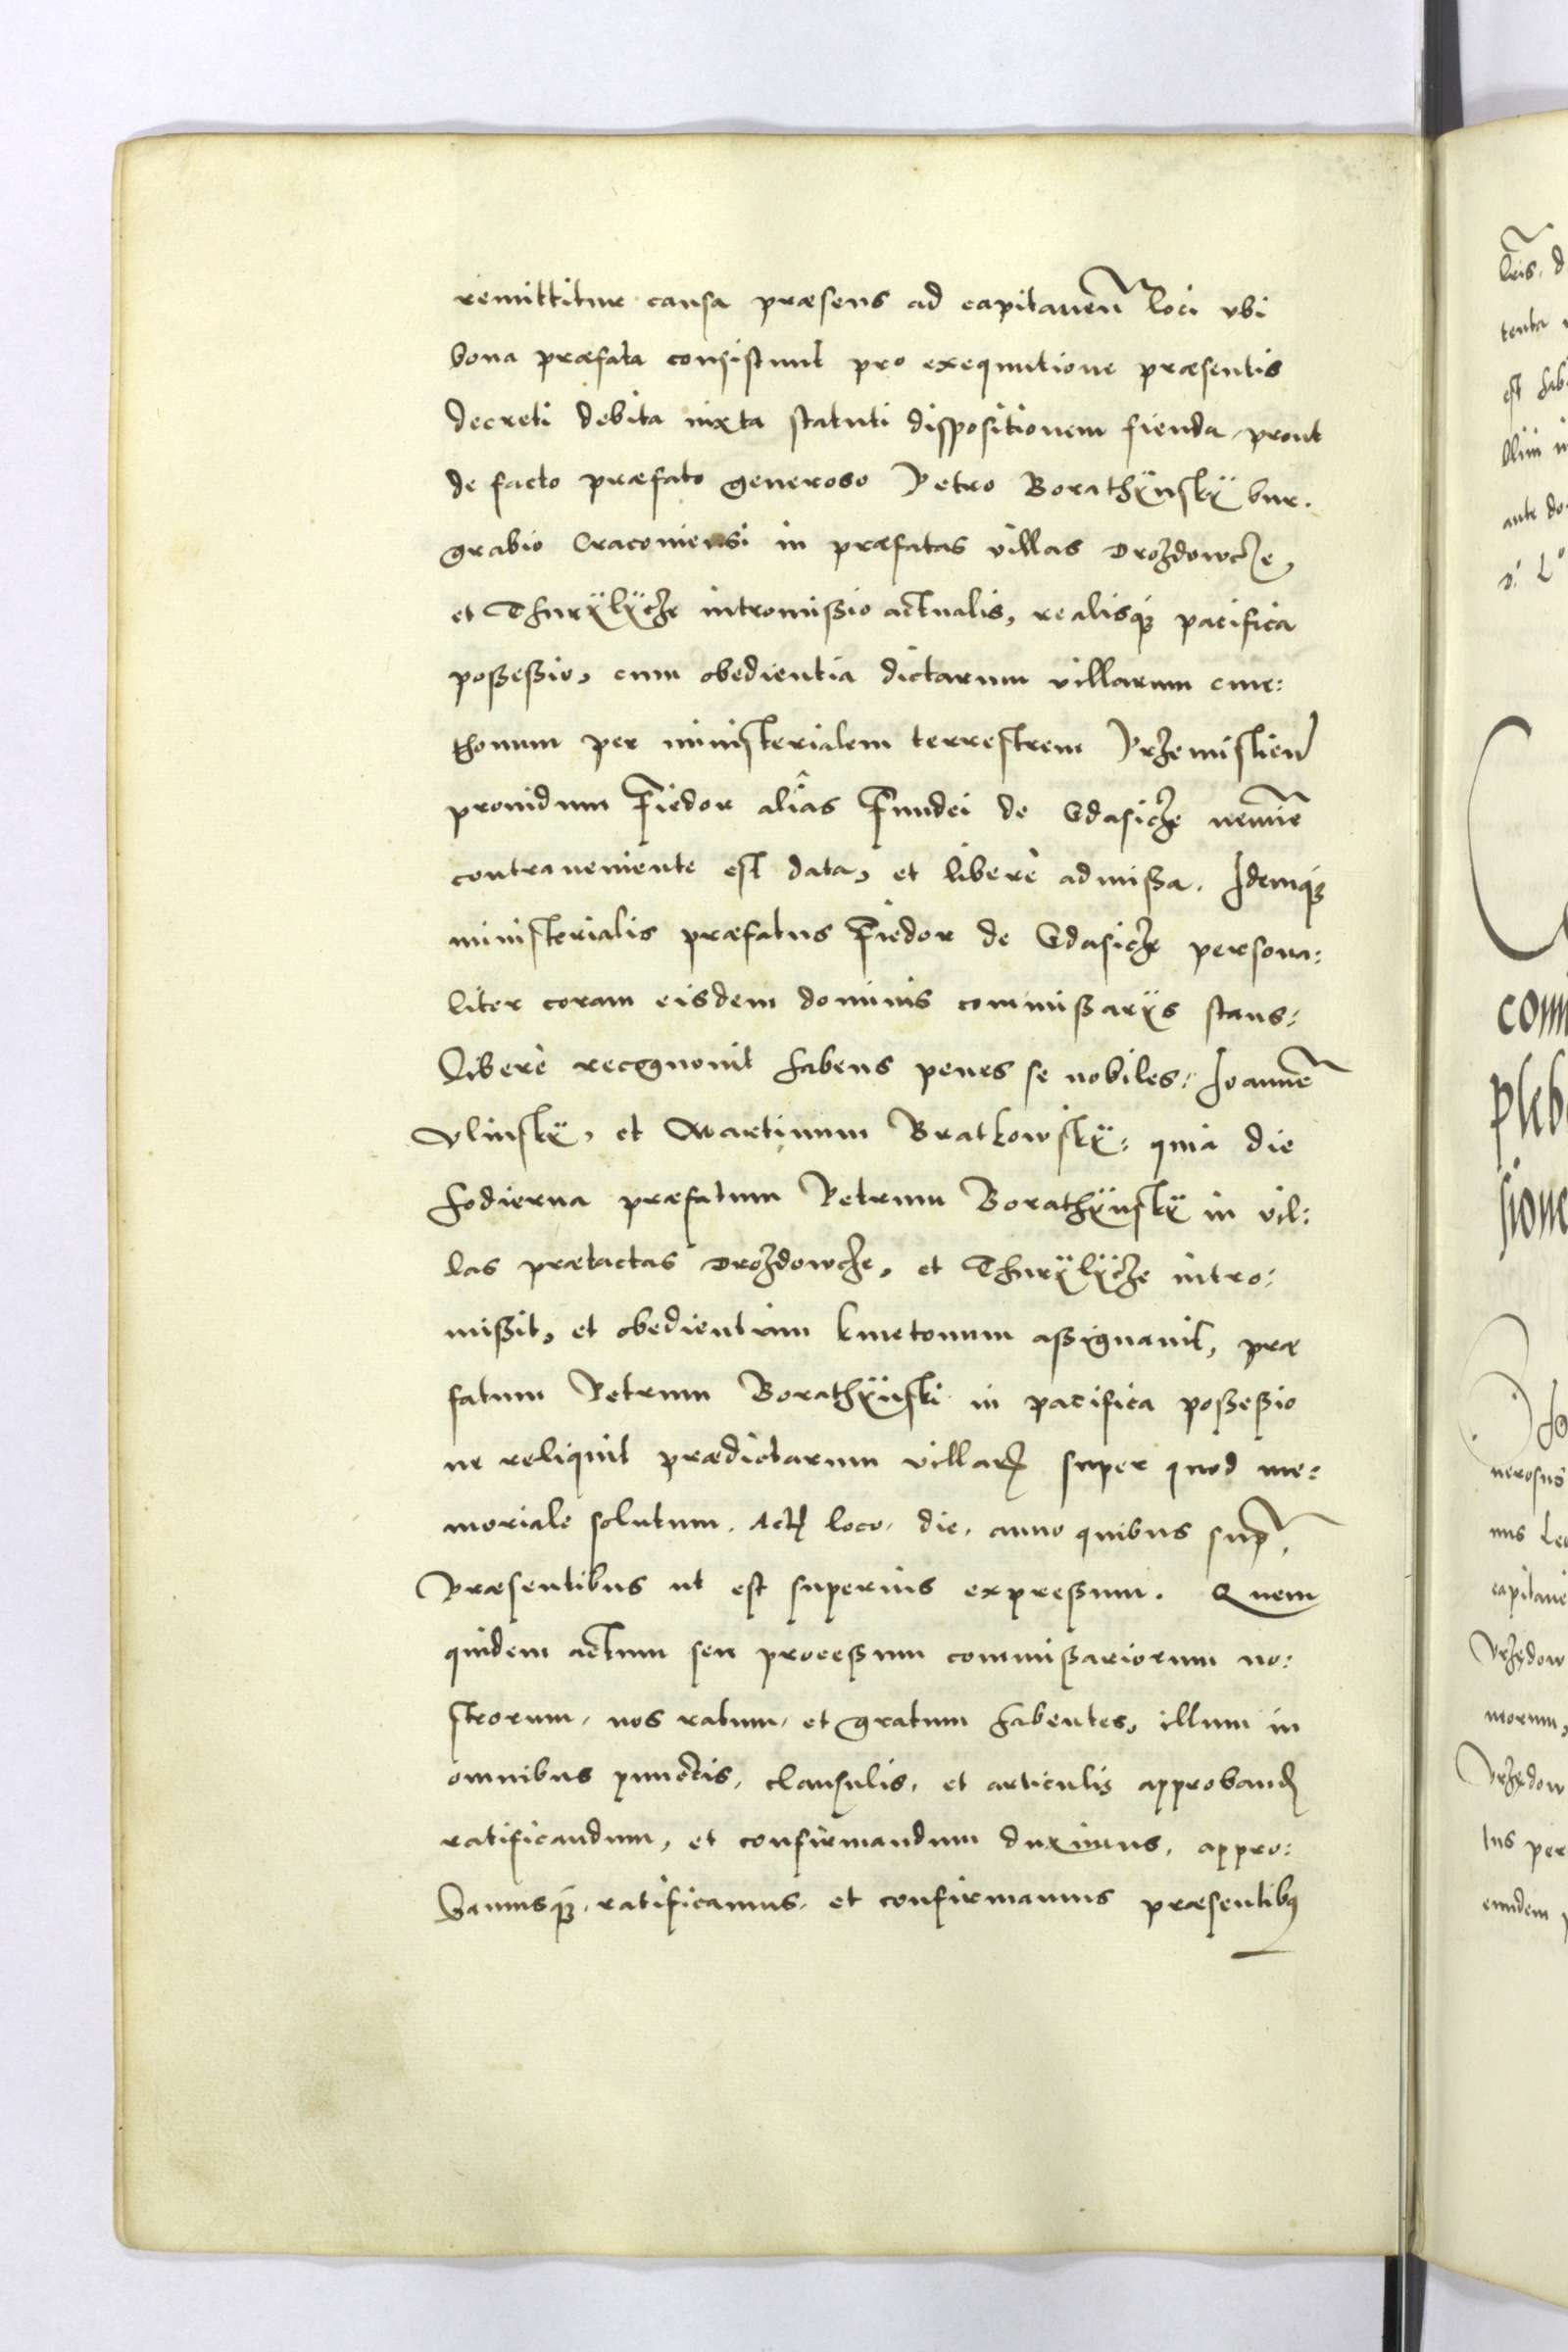 remittitur causa præsens ad capitaneū loci vbi
bona præfata consistunt pro exequutione præsentis
decreti debita iuxta statuti dispositionem fienda, prout
de facto præfato generoso Petro Borathÿnskÿ bur-
grabio Cracouiensi in præfatas villas Drozdowcze,
et Thurÿlÿcze intromißio actualis, realisq; pacifica
poßeßio, cum obedientia dictarum villarum cme:
thonum per ministerialem terrestrem Przemislieñ
prouidum Fiedor aliâs Fundei de Gdasicze nemīe
contraueniente est data, et liberè admißa. Idemq;
ministerialis præfatus Fiedor de Gdasicze persona:
liter coram eisdem dominis commißarÿs stans:
Liberè recognouit habens penes se nobiles: Ioannē
Vlinskÿ, et Martinum Bratkowskÿ: quia die
hodierna præfatum Petrum Borathÿnskÿ in vil:
las prætactas Drozdowcze, et Thurÿlÿcze intro:
mißit, et obedientiam kmetonum aßignauit, præ
fatum Petrum Borathÿnski in pacifica poßeßio
ne reliquit prædictarum villarꝶ super quod me:
moriale solutum. Actꝶ loco, die, anno quibus supr̃,
Præsentibus ut est superius expreßum. Quem
quidem actum seu proceßum commißariorum no:
strorum, nos ratum, et gratum habentes, illum in
omnibus punctis, clausulis, et articulis approband̃
ratificandum, et confirmandum duximus, appro:
bamusq; ratificamus, et confirmamus præsentibꝰ